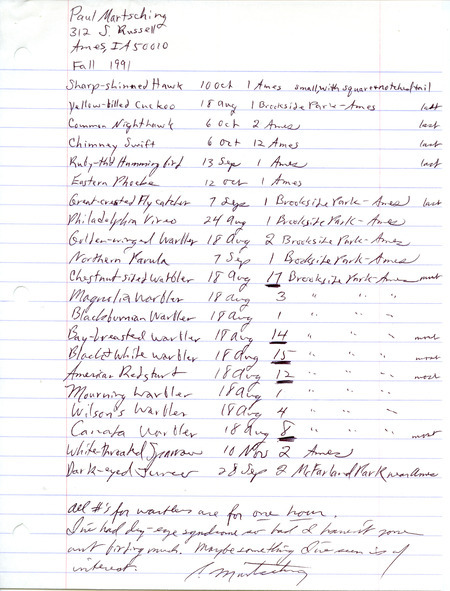 Paul Martsching
312 S. Russell
Ames, IA 50010
Fall 1991
Sharp-shinned Hawk 10 Oct 1 Ames small, with square + notched tail
Yellow-billed Cuckoo 18 Aug 1 Brookside Park-Ames last
Common Nighthawk 6 Oct 2 Ames last
Chimney Swift 6 Oct 12 Ames last
Ruby-thtd Hummingbird 13 Sep 1 Ames last
Eastern Phoebe 12 Oct 1 Ames
Great-crested Flycatcher 7 Sep 1 Brookside Park-Ames last
Philadelphia Vireo 24 Aug 1 Brookside Park-Ames
Golden-winged Warbler 18 Aug 2 Brookside Park-Ames
Northern Parula 7 Sep 1 Brookside Park-Ames
Chestnut-sided Warbler 18 Aug 17 Brookside Park-Ames most
Magnolia Warbler 18 Aug 3 " " "
Blackburnian Warbler 18 Aug 1 " " "
Bay-breasted Warbler 18 Aug 14 " " " most
Black & White Warbler 18 Aug 15 " " " most
American Redstart 18 Aug 12 " " " most
Mourning Warbler 18 Aug 1 " " "
Wilson's Warbler 18 Aug 4 " " "
Canada Warbler 18 Aug 8 " " " most
White-throated Sparrow 10 Nov 2 Ames
Dark-eyed Junco 28 Sep 2 McFarland Park near Ames
All #'s for warblers are for one hour.
I've had dry-eye syndrome so bad I haven't gone
out birding much. Maybe something I've seen is of
interest. P. Martsching